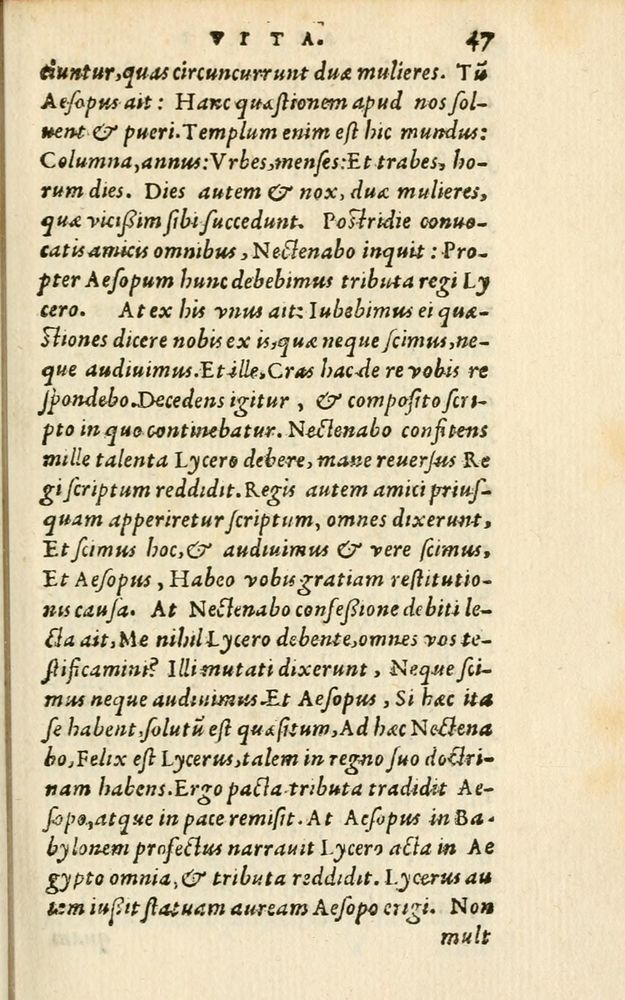 VITA. 47
ciuntur, quas circuncurrunt duæ mulieres. Tũ
Aeſopus ait: Hanc quæſtionem apud nos ſol-
uent & pueri. Templum enim eſt hic mundus:
Columna, annus: Vrbes, menſes: Et trabes, ho-
rum dies. Dies autem & nox, duæ mulieres,
quæ vicißim ſibi ſuccedunt. Poſtridie conuo-
catis amicis omnibus, Nectenabo inquit: Pro-
pter Aeſopum hunc debebimus tributa regi Ly
cero. At ex his vnus ait: Iubebimus ei quæ-
ſtiones dicere nobis ex is, quæ neque ſcimus, ne-
que audiuimus. Et ille, Cras hac de re vobis re
ſpondebo. Decedens igitur, & compoſito ſcri-
pto in quo continebatur. Nectenabo confitens
mille talenta Lycero debere, mane reuerſus Re
gi ſcriptum reddidit. Regis autem amici priuſ-
quam apperiretur ſcriptum, omnes dixerunt,
Et ſcimus hoc, & audiuimus & vere ſcimus,
Et Aeſopus, Habeo vobis gratiam reſtitutio-
nis cauſa. At Nectenabo confeßione debiti le-
cta ait, Me nihil Lycero debente, omnes vos te-
ſtificamini? Illi mutati dixerunt, Neque ſci-
mus neque audiuimus. Et Aeſopus, Si hæc ita
ſe habent, ſolutũ eſt quæſitum, Ad hæc Nectena
bo, Felix eſt Lycerus, talem in regno ſuo doctri-
nam habens. Ergo pacta tributa tradidit Ae-
ſopo, atque in pace remiſit. At Aeſopus in Ba-
bylonem profectus narrauit Lycero acta in Ae
gypto omnia, & tributa reddidit. Lycerus au
tem iußit ſtatuam auream Aeſopo erigi. Non
mult